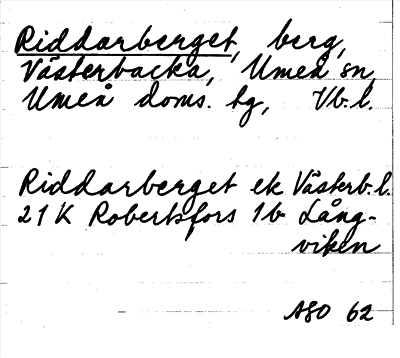 Riddarberget, berg,
Västerbacka, Umeå sn,
Umeå doms. tg, Vb. l.
Riddarberget ek Västerb. l.
21 K Robertsfors 1 b Lång-
viken
ASO 62